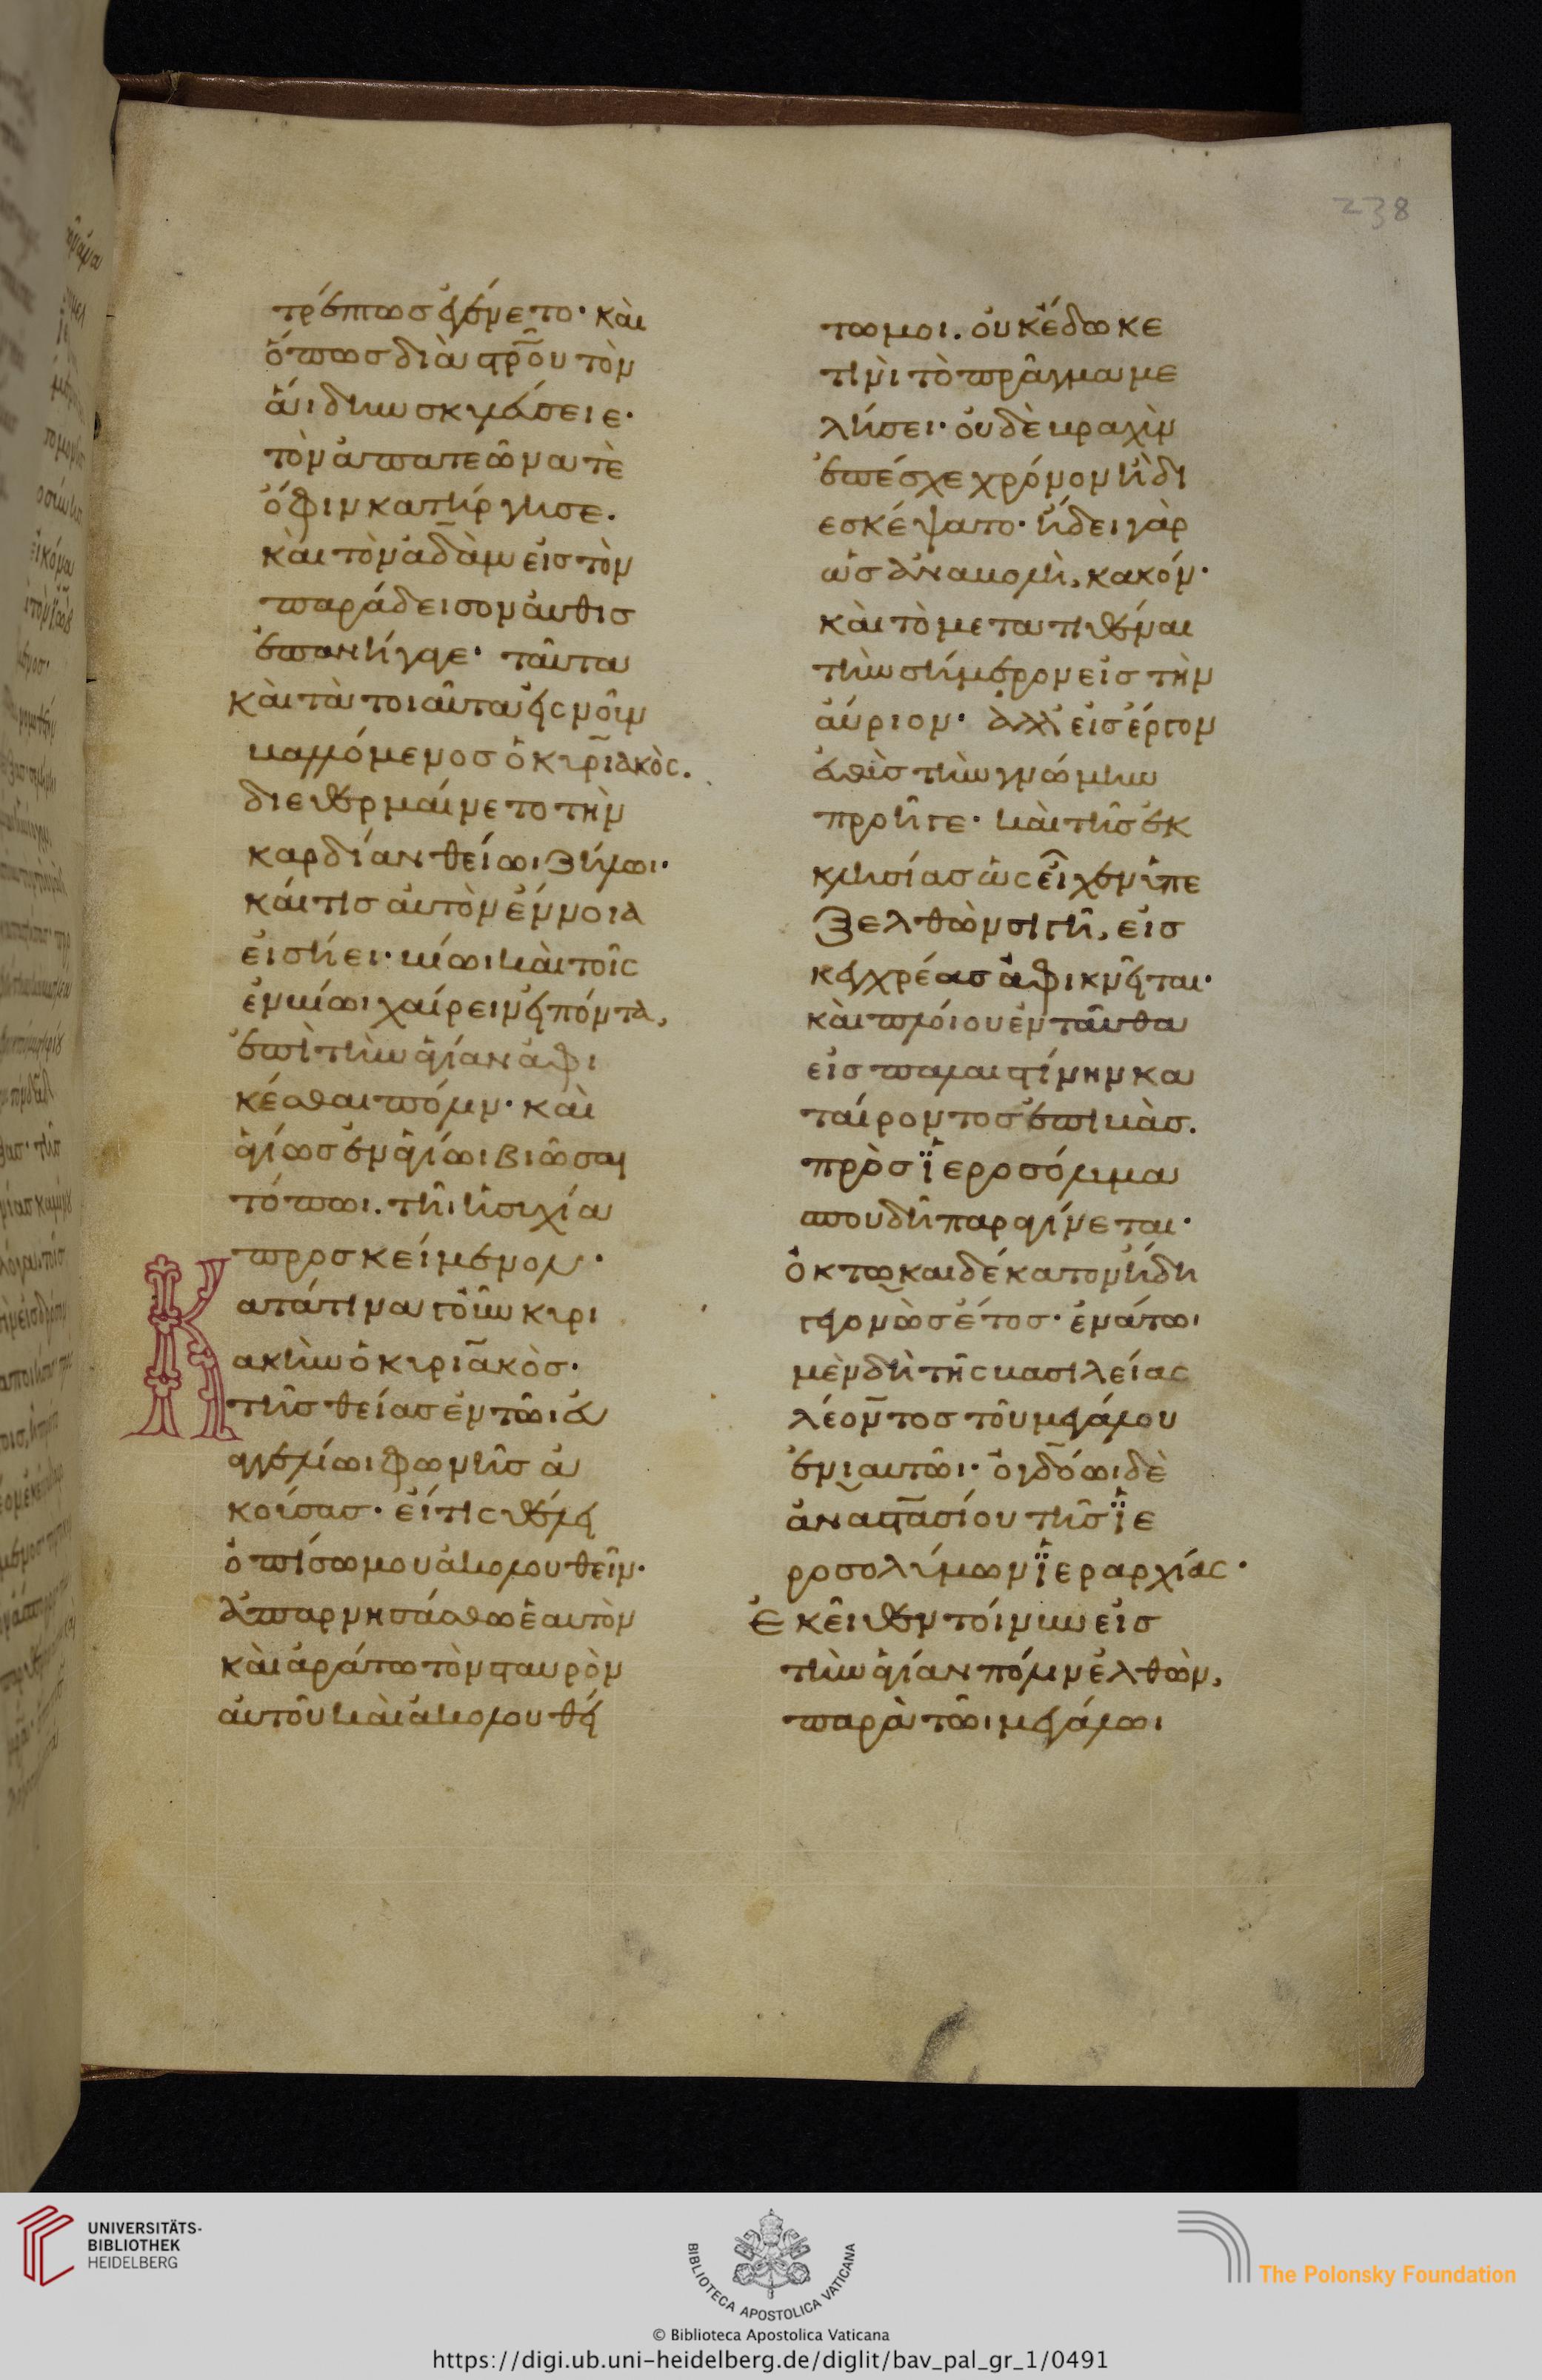 238
τρέπτως ἐγένετο· καὶ
ὅπως διὰ στρου τὸν
ἅιδην σκυλάσειε·
τὸν ἀπατεῶνα τὲ
ὄφιν κατήργησε.
καὶ τὸν ἀδὰμ εἰς τὸν
παράδεισον αὖθις
ἐπανήγαγε· ταῦτα
καὶ τὰ τοιαῦτα εἰς νοῦν
βαλλόμενος ὁ κυριακὸς.
διεθερμαίνετο τὴν
καρδίαν θείωι ζήλωι·
καί τις αὐτὸν ἔννοια
εἰσήει· βίωι καὶ τοῖς
ἐν βίωι χαίρειν εἰπόντα,
ἐπὶ τὴν ἁγίαν ἀφι
κέσθαι πόλιν· καὶ
ἁγίως ἐν ἁγίωι βιῶσαι
τόπωι. τῆι ἡσυχία
προσκείμενον·
Κατά τινα τοίνυν κυρι
ακὴν ὁ κυριακὸς·
τῆς θείας ἐν τῶι ἐυ
αγγελίωι φωνῆς ἀ
κούσας· εἴτις θέλει
ὀπίσω μου ἀκολουθεῖν·
ἀπαρνησάσθω ἑαυτὸν
καὶ ἀράτω τὸν σταυρὸν
αὐτοῦ καὶ ἀκολουθεί
τω μοι. οὐκ ἔδωκε
τινὶ τὸ πρᾶγμα με
λήσει· οὐδὲ βραχὺν
ἐπέσχε χρόνον ἢ δι
εσκέψατο· ἤδει γὰρ
ὡς ἀναβολὴ, κακόν·
καὶ τὸ μετατιθέναι
τὴν σήμερον εἰς τὴν
αὔριον· ἀλλ' εἰς ἔργον
ἐυθὺς τὴν γνώμην
προῆγε· καὶ τῆς ἐκ
κλησίας ὡς εἶχεν ὑπε
ξελθὼν σιγῆ, εἰς
κεγχρέας ἀφικνεῖται·
καὶ πλοίου ἐνταῦθα
εἰς παλαιστίνην κα
ταίροντος ἐπιβὰς.
πρὸς ἱεροσόλυμα
σπουδῆ παραγίνεται·
ὀκτωκαιδέκατον ἤδη
γεγονὼς ἔτος· ἐνάτωι
μὲν δὴ τῆς βασιλείας
λέοντος τοῦ μεγάλου
ἐνιαυτῶι· ὀγδόωι δὲ
ἀναστασίου τῆς ἱε
ροσολύμων ἱεραρχίας·
Ἐκεῖθεν τοίνυν εἰς
τὴν ἁγίαν πόλιν ἐλθὼν,
παρὰ τῶι μεγάλωι
UNIVERSITÄTS-
BIBLIOTHEK
HEIDELBERG
BIBLIOTECA APOSTOLICA VATICANA
The Polonsky Foundation
© Biblioteca Apostolica Vaticana
https://digi.ub.uni-heidelberg.de/diglit/bav_pal_gr_1/0491